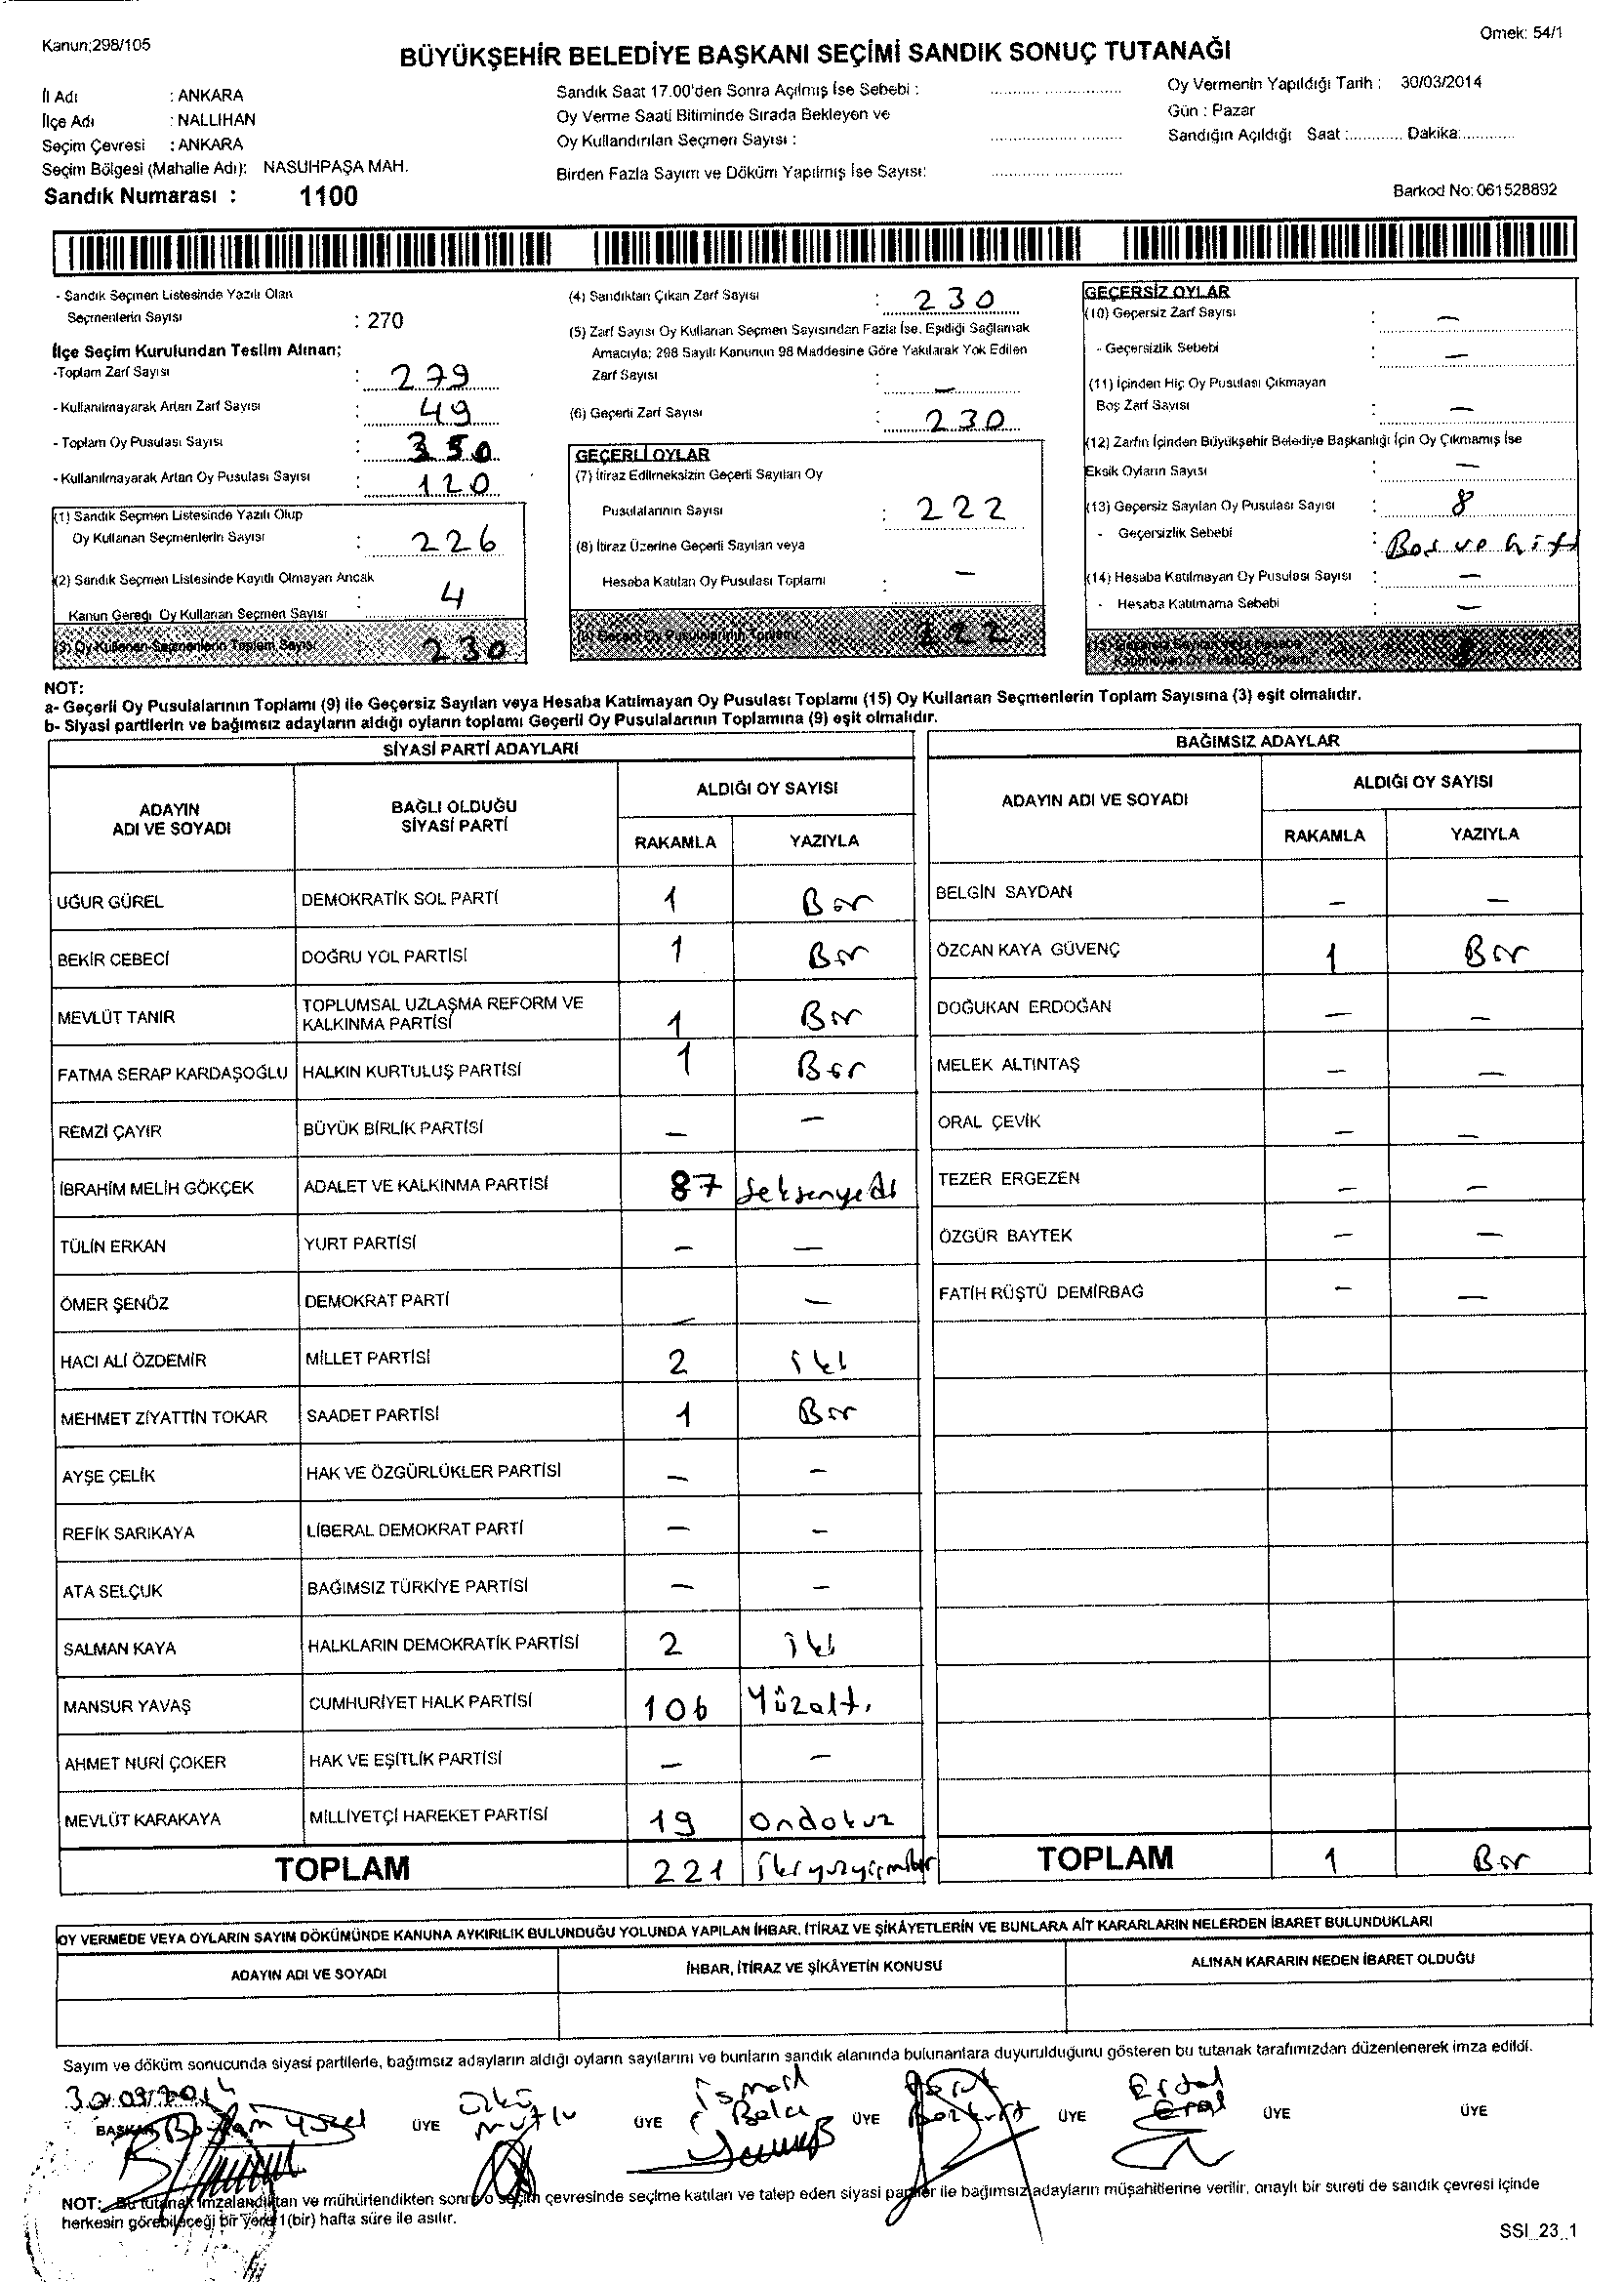 Kanun;298/105
Örnek: 54/1
BÜYÜKŞEHİR BELEDİYE BAŞKANI SEÇİMİ SANDIK SONUÇ TUTANAĞI
İl Adı : ANKARA
İlçe Adı : NALLIHAN
Seçim Çevresi : ANKARA
Seçim Bölgesi (Mahalle Adı): NASUHPAŞA MAH.
Sandık Numarası : 1100
Sandık Saat 17.00'den Sonra Açılmış İse Sebebi :
Oy Verme Saati Bitiminde Sırada Bekleyen ve
Oy Kullandırılan Seçmen Sayısı :
Birden Fazla Sayım ve Döküm Yapılmış İse Sayısı:
Oy Vermenin Yapıldığı Tarih : 30/03/2014
Gün : Pazar
Sandığın Açıldığı Saat :............ Dakika:............
Barkod No: 061528892
- Sandık Seçmen Listesinde Yazılı Olan
Seçmenlerin Sayısı : 270
İlçe Seçim Kurulundan Teslim Alınan;
-Toplam Zarf Sayısı : 279
- Kullanılmayarak Artan Zarf Sayısı : 49
- Toplam Oy Pusulası Sayısı : 350
- Kullanılmayarak Artan Oy Pusulası Sayısı : 120
(1) Sandık Seçmen Listesinde Yazılı Olup
Oy Kullanan Seçmenlerin Sayısı : 226
(2) Sandık Seçmen Listesinde Kayıtlı Olmayan Ancak
Kanun Gereği Oy Kullanan Seçmen Sayısı : 4
(3) Oy Kullanan Seçmenlerin Toplam Sayısı 230
(4) Sandıktan Çıkan Zarf Sayısı : 230
(5) Zarf Sayısı Oy Kullanan Seçmen Sayısından Fazla İse, Eşitliği Sağlamak
Amacıyla; 298 Sayılı Kanunun 98 Maddesine Göre Yakılarak Yok Edilen
Zarf Sayısı : –
(6) Geçerli Zarf Sayısı : 230
GEÇERLİ OYLAR
(7) İtiraz Edilmeksizin Geçerli Sayılan Oy
Pusulalarının Sayısı : 222
(8) İtiraz Üzerine Geçerli Sayılan veya
Hesaba Katılan Oy Pusulası Toplamı : –
(9) Geçerli Oy Pusulalarının Toplamı 222
GEÇERSİZ OYLAR
(10) Geçersiz Zarf Sayısı : –
- Geçersizlik Sebebi : –
(11) İçinden Hiç Oy Pusulası Çıkmayan
Boş Zarf Sayısı : –
(12) Zarfın İçinden Büyükşehir Belediye Başkanlığı İçin Oy Çıkmamış İse
Eksik Oyların Sayısı : –
(13) Geçersiz Sayılan Oy Pusulası Sayısı : 8
- Geçersizlik Sebebi : Boş ve çift
(14) Hesaba Katılmayan Oy Pusulası Sayısı : –
- Hesaba Katılmama Sebebi : –
(15) Geçersiz Sayılan veya Hesaba
Katılmayan Oy Pusulası Toplamı 8
NOT:
a- Geçerli Oy Pusulalarının Toplamı (9) ile Geçersiz Sayılan veya Hesaba Katılmayan Oy Pusulası Toplamı (15) Oy Kullanan Seçmenlerin Toplam Sayısına (3) eşit olmalıdır.
b- Siyasi partilerin ve bağımsız adayların aldığı oyların toplamı Geçerli Oy Pusulalarının Toplamına (9) eşit olmalıdır.
SİYASİ PARTİ ADAYLARI
ADAYIN ADI VE SOYADI
BAĞLI OLDUĞU SİYASİ PARTİ
ALDIĞI OY SAYISI
RAKAMLA YAZIYLA
UĞUR GÜREL DEMOKRATİK SOL PARTİ 1 Bir
BEKİR CEBECİ DOĞRU YOL PARTİSİ 1 Bir
MEVLÜT TANIR TOPLUMSAL UZLAŞMA REFORM VE KALKINMA PARTİSİ 1 Bir
FATMA SERAP KARDAŞOĞLU HALKIN KURTULUŞ PARTİSİ 1 Bir
REMZİ ÇAYIR BÜYÜK BİRLİK PARTİSİ – –
İBRAHİM MELİH GÖKÇEK ADALET VE KALKINMA PARTİSİ 87 Seksenyedi
TÜLİN ERKAN YURT PARTİSİ – –
ÖMER ŞENÖZ DEMOKRAT PARTİ – –
HACI ALİ ÖZDEMİR MİLLET PARTİSİ 2 iki
MEHMET ZİYATTİN TOKAR SAADET PARTİSİ 1 Bir
AYŞE ÇELİK HAK VE ÖZGÜRLÜKLER PARTİSİ – –
REFİK SARIKAYA LİBERAL DEMOKRAT PARTİ – –
ATA SELÇUK BAĞIMSIZ TÜRKİYE PARTİSİ – –
SALMAN KAYA HALKLARIN DEMOKRATİK PARTİSİ 2 iki
MANSUR YAVAŞ CUMHURİYET HALK PARTİSİ 106 Yüzaltı
AHMET NURİ ÇOKER HAK VE EŞİTLİK PARTİSİ – –
MEVLÜT KARAKAYA MİLLİYETÇİ HAREKET PARTİSİ 19 Ondokuz
TOPLAM 221 ikiyüzyirmibir
BAĞIMSIZ ADAYLAR
ADAYIN ADI VE SOYADI
ALDIĞI OY SAYISI
RAKAMLA YAZIYLA
BELGİN SAYDAN – –
ÖZCAN KAYA GÜVENÇ 1 Bir
DOĞUKAN ERDOĞAN – –
MELEK ALTINTAŞ – –
ORAL ÇEVİK – –
TEZER ERGEZEN – –
ÖZGÜR BAYTEK – –
FATİH RÜŞTÜ DEMİRBAĞ – –
TOPLAM 1 Bir
OY VERMEDE VEYA OYLARIN SAYIM DÖKÜMÜNDE KANUNA AYKIRILIK BULUNDUĞU YOLUNDA YAPILAN İHBAR, İTİRAZ VE ŞİKÂYETLERİN VE BUNLARA AİT KARARLARIN NELERDEN İBARET BULUNDUKLARI
ADAYIN ADI VE SOYADI
İHBAR, İTİRAZ VE ŞİKÂYETİN KONUSU
ALINAN KARARIN NEDEN İBARET OLDUĞU
Sayım ve döküm sonucunda siyasi partilerle, bağımsız adayların aldığı oyların sayılarını ve bunların sandık alanında bulunanlara duyurulduğunu gösteren bu tutanak tarafımızdan düzenlenerek imza edildi.
30.03/2014
BAŞKAN ÜYE Mutlu ÜYE İsmail ÜYE Bozkurt ÜYE Erdal Eral ÜYE ÜYE
NOT: Bu tutanak imzalandıktan ve mühürlendikten sonra o seçim çevresinde seçime katılan ve talep eden siyasi partiler ile bağımsız adayların müşahitlerine verilir, onaylı bir sureti de sandık çevresi içinde
herkesin görebileceği bir yere 1(bir) hafta süre ile asılır.
SSI_23_1